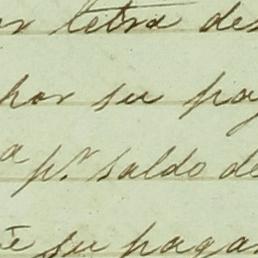 or letra des
por su pag
a pr. saldo de
é su pagar